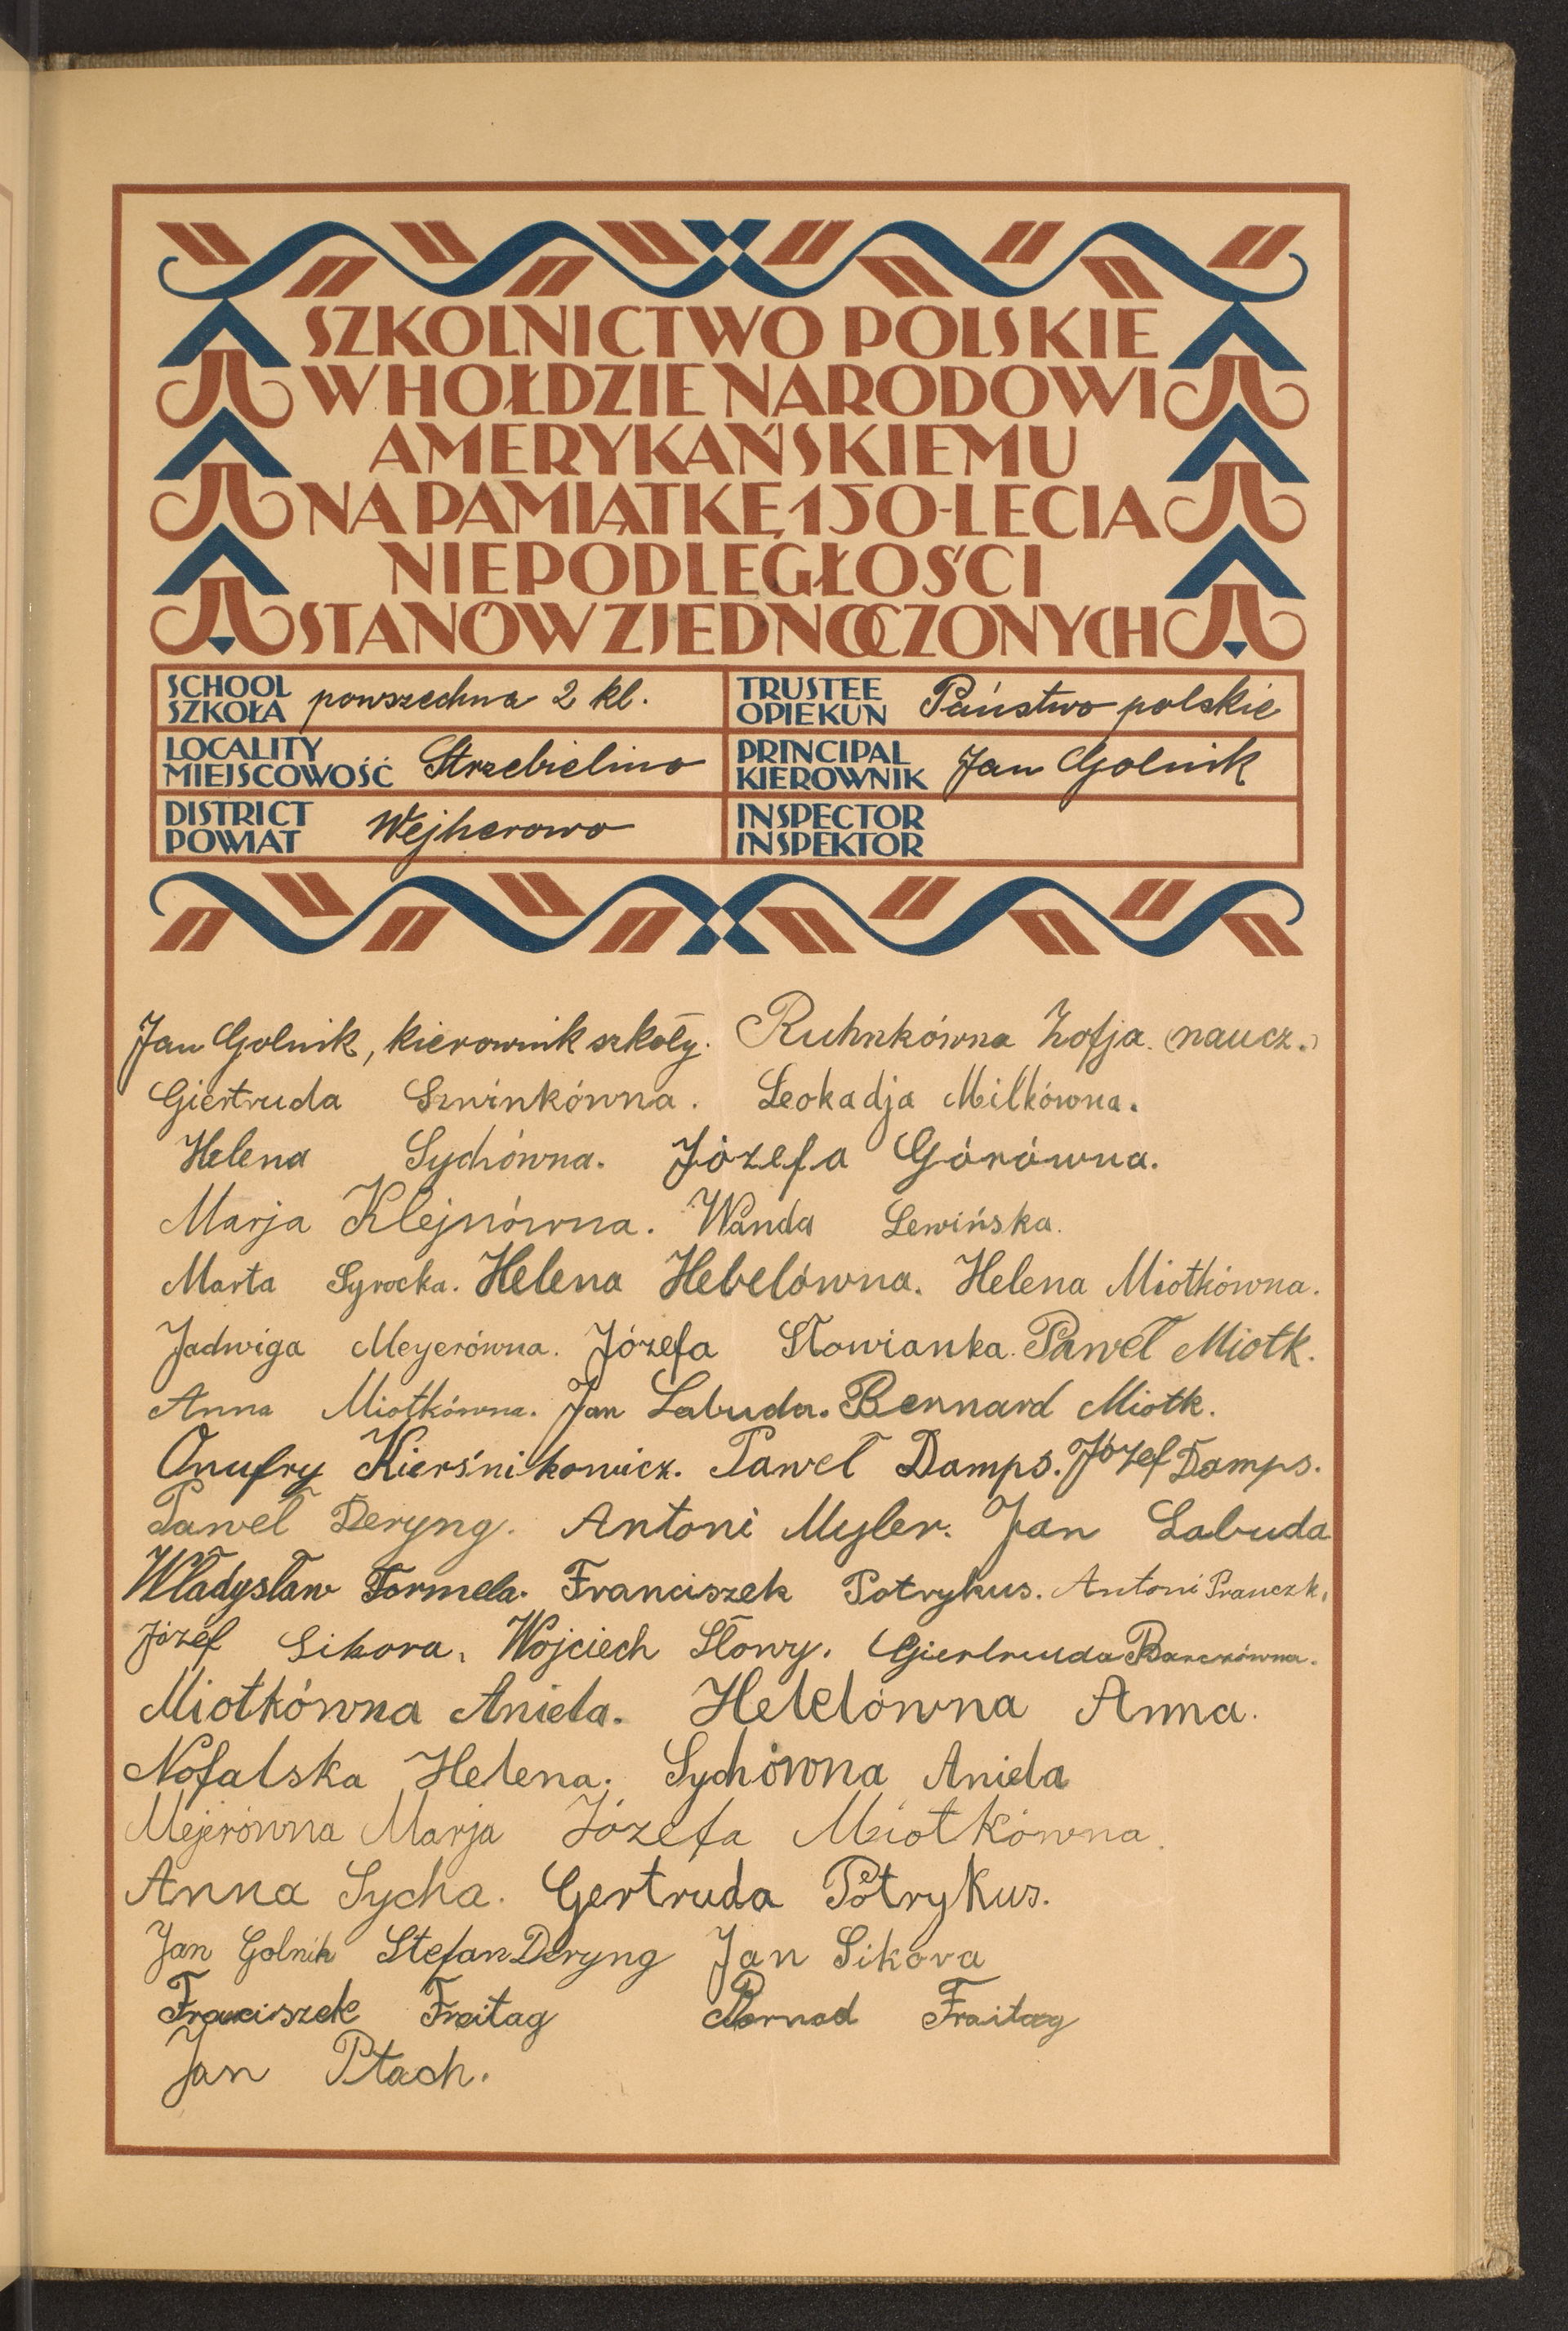 SZKOLNICTWO POLSKIE
W HOŁDZIE NARODOWI
AMERYKAŃSKIEMU
NA PAMIĄTKĘ 150-LECIA
NIEPODLEGŁOŚCI
STANÓW ZJEDNOCZONYCH
SCHOOL SZKOŁA powszechna 2 kl.
TRUSTEE OPIEKUN Państwo polskie
LOCALITY MIEJSCOWOŚĆ Strzebielino
PRINCIPAL KIEROWNIK Jan Golnik
DISTRICT POWIAT Wejherowo
INSPECTOR INSPEKTOR
Jan Golnik, kierownik szkoły. Ruhnkówna Zofja (naucz.)
Giertruda Szwinkówna. Leokadja Milkówna.
Helena Sychówna. Józefa Górówna.
Marja Klejnówna. Wanda Lewińska.
Marta Syrocka. Helena Hebelówna. Helena Miotkówna.
Jadwiga Meyerówna. Józefa Słowianka. Paweł Miotk.
Anna Miotkówna. Jan Labuda. Bernard Miotk.
Onufry Kierśnikowicz. Paweł Damps. Józef Damps.
Paweł Deryng. Antoni Myler. Jan Labuda
Władysław Formela. Franciszek Potrykus. Antoni
Józef Sikora. Wojciech Słowy. Giertruda
Miotkówna Aniela. Hebelówna Anna.
Nofalska Helena. Sychówna Aniela
Mejerówna Marja Józefa Miotkówna.
Anna Sycha. Gertruda Potrykus.
Jan Golnik Stefan Deryng Jan Sikora
Franciszek Freitag Bernad Fraitag
Jan Ptach.